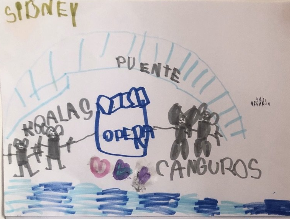 SIDNEY
PUENTE
KOALAS
OPERA
CANGUROS